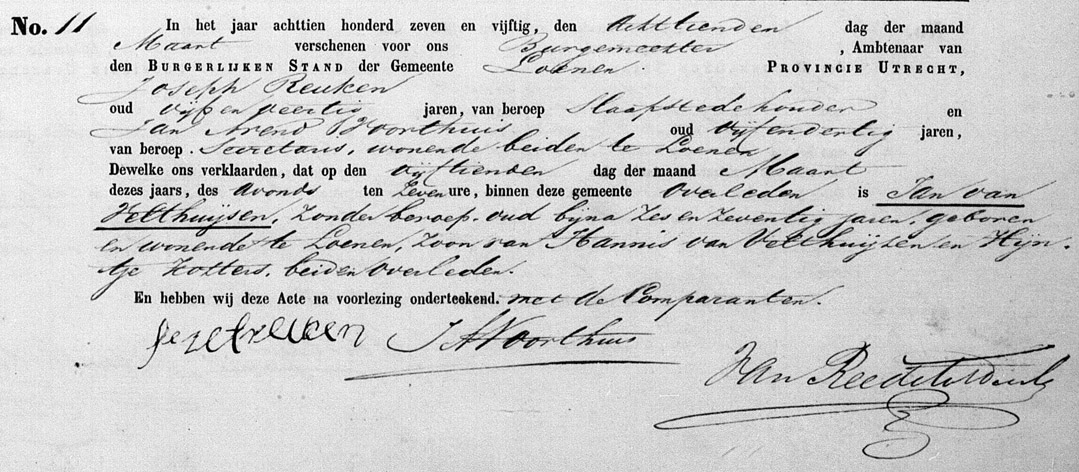 No. 11 In het jaar achttien honderd zeven en vijftig, den Achttienden dag der maand
Maart verschenen voor ons Burgemeester , Ambtenaar van
den BURGERLIJKEN STAND der Gemeente Loenen. PROVINCIE UTRECHT,
Joseph Reuken
oud vijf en veertig jaren, van beroep Slaapstedehouder en
Jan Arend Voorthuis oud vijfendertig jaren,
van beroep Secretaris, wonende beiden te Loenen
Dewelke ons verklaarden, dat op den vijftienden dag der maand Maart
dezes jaars, des avonds ten zeven ure, binnen deze gemeente overleden is Jan van
Velthuijsen, zonder beroep, oud bijna zes en zeventig jaren, geboren
en wonende te Loenen, zoon van Hannis van Velthuijsen en Hijn-
tje Kotters, beiden overleden.
En hebben wij deze Acte na voorlezing onderteekend. met de Comparanten.
J A Voorthuis
Van Reede